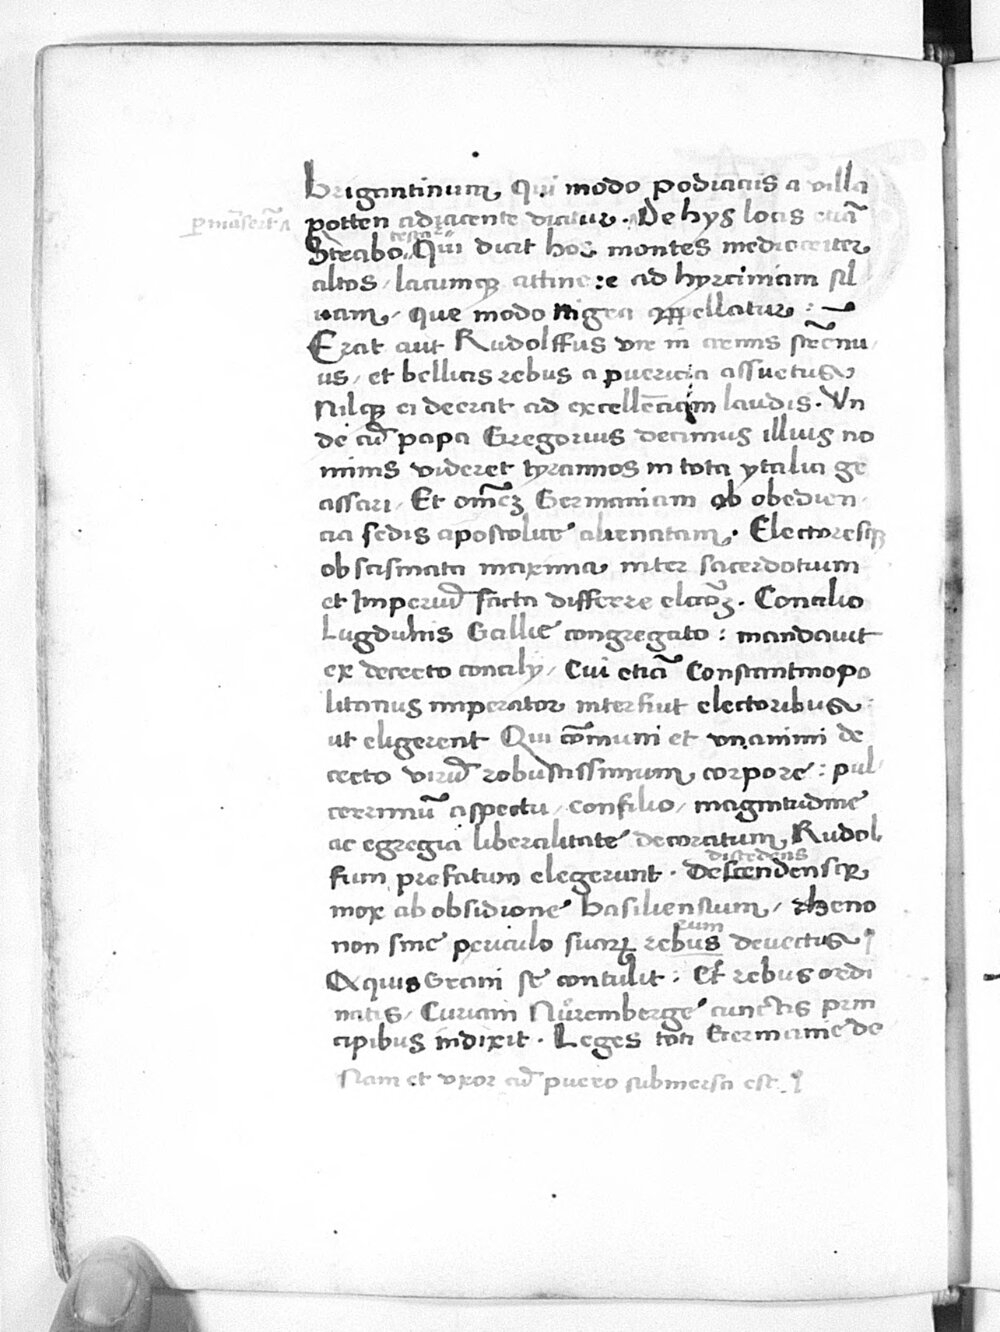 brigantinum, Qui modo podiacis a villa
potten adiacente dicitur. De hys locis etiā
testat̃
Strabo, Qui dicit hos montes mediocriter
altos, lacumqꝫ attinere ad hyrciniam sil
uam, que modo nigra appellatur:
Erat aut̄ Rudolffus vir in armis strēnu
us, et bellicis rebus a puericia assuetus,
Nilqꝫ ei deerat ad excellēciam laudis. Vn
de cū papa Gregorius decimus illius no
minis videret tyrannos in tota ytalia gr
assari, Et om̄eꝫ Germaniam ab obedien
cia sedis apostolice alienatam. Electoresqꝫ
ob scismata maxima inter sacerdotium
et Imperiū facta differre elcōꝫ. Concilio
Lugduni Gallie congregato: mandauit
ex decreto concily, Cui etiā Constantinopo
litanus imperator interfuit electoribus,
ut eligerent Qui cōmuni et vnanimi de
creto virū robustissimum, corpore: pul
cerrimū aspectu, consilio, magnitudine
ac egregia liberalitate decoratum, Rudol
fum prefatum elegerunt. Descendensqꝫ
discedens
mox ab obsidione basiliensium, rheno
non sine periculo suarꝝ rebus deuectus
rum
Aquisgrani se contulit: Et rebus ordi
natis, Curiam Nůremberge cunctis prin
cipibus indixit. Leges toti Germanie de
Nam et vxor cū puero submersa est